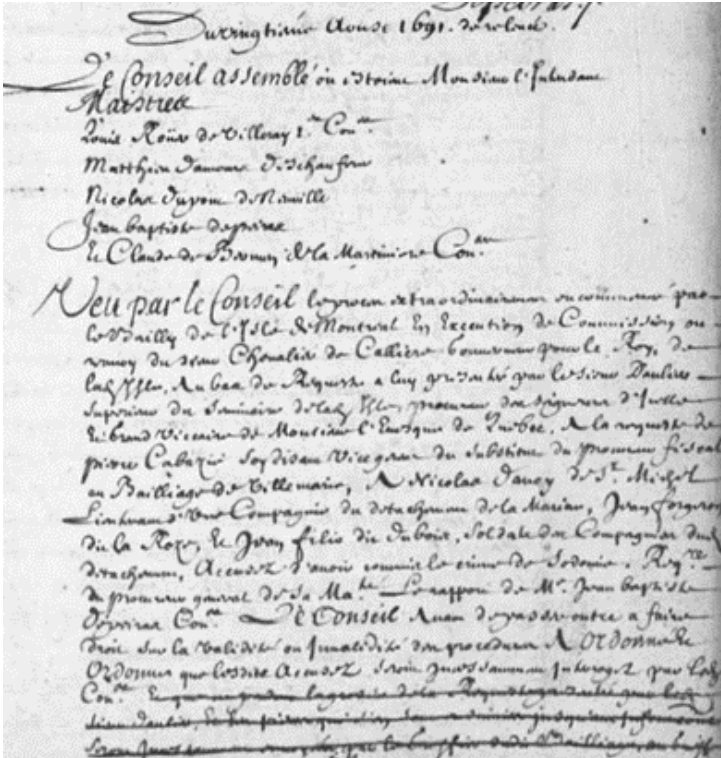 Du vingtième Aoust 1691. de relevée.
Le Conseil assemblé où estoient Monsieur l'Intendant
Maistres
Louis Roüer de Villeray 1.er Con.er
Matthieu Damours Deschaufour
Nicolas Dupont de Neuville
Jean baptiste Depeiras
Et Claude de Bermen de la Martiniere Con.ers
Veu par le Conseil le procez extraordinairement encommencé par
le Bailly de l'Isle de Montreal En Execution de Commission ou
renvoy du sieur Chevalier de Calliere Gouverneur pour le Roy, de
lad. Isle, Au bas de Requeste a luy presenté par le sieur
Superieur du Seminaire de lad. Isle, procureur des seigneurs d'Icelle
Et Grand Viccaire de Monsieur l'Evesque de Quebec, A la requeste de
pierre Cabazié soy disant Vicegerent du substitut du procureur fiscal
au Bailliage de Villemarie, A Nicolas Daucy de S.t Michel
Lieutenant d'Une Compagnie du detachement de la Marine, Jean forgeron
dit la Roze, Et Jean filio dit dubois, Soldats des Compagnies dud.
detachement, Accusez d'avoir commis le crime de Sodomie. Req.re
du procureur general de Sa Ma.té Le rapport de M.e Jean baptiste
Depeiras Con.er Le Conseil Avant de passer outre a faire
droit sur la validité ou Invalidité des procedures A Ordonné Et
Ordonne que lesdits Accusez seront Incessamment Interogez par led.
Con.er